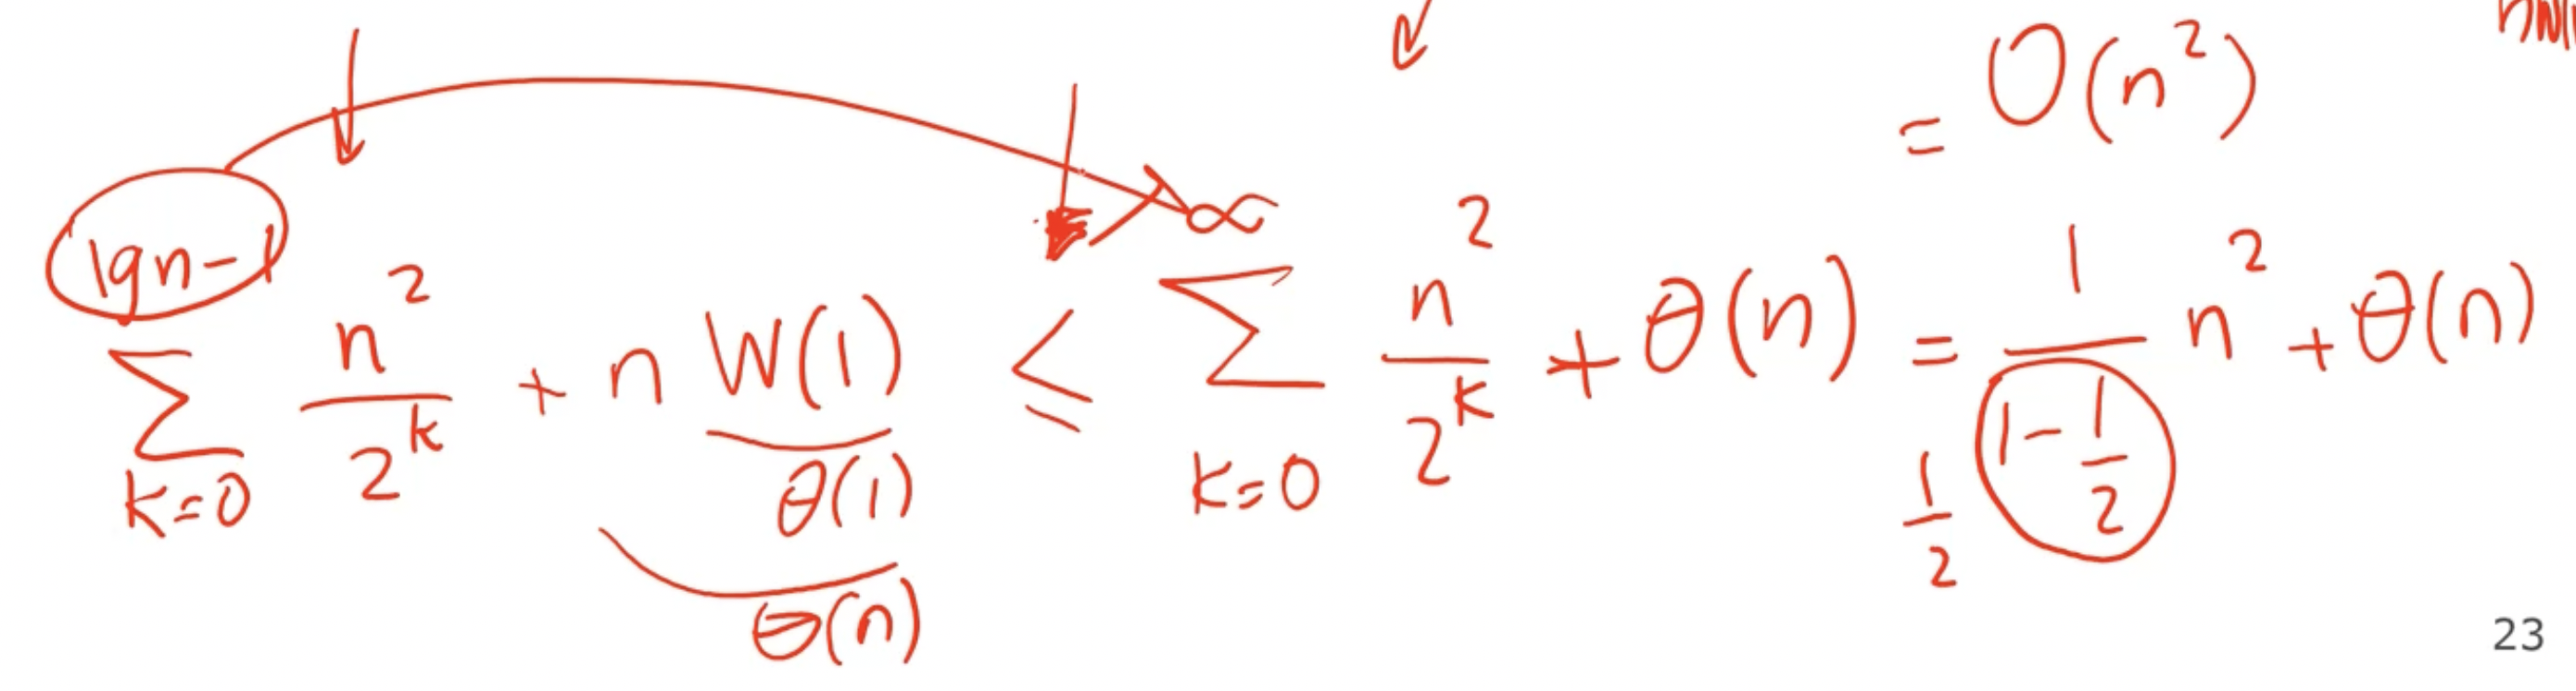 = O(n²)
∑_{k=0}^{lgn-1} n²/2^k + n W(1) ≤ ∑_{k=0}^{∞} n²/2^k + θ(n) = 1/(1-1/2) n² + θ(n)
θ(1)
1/2
θ(n)
23